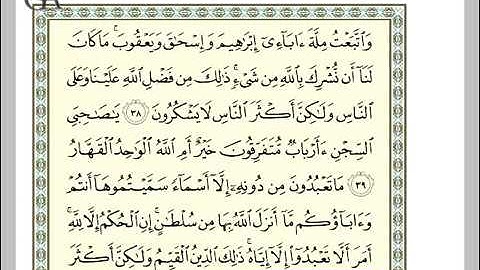 وَٱتَّبَعْتُ مِلَّةَ ءَابَآءِىٓ إِبْرَٰهِيمَ وَإِسْحَٰقَ وَيَعْقُوبَ ۚ مَا كَانَ
لَنَآ أَن نُّشْرِكَ بِٱللَّهِ مِن شَىْءٍ ۚ ذَٰلِكَ مِن فَضْلِ ٱللَّهِ عَلَيْنَا وَعَلَى
ٱلنَّاسِ وَلَٰكِنَّ أَكْثَرَ ٱلنَّاسِ لَا يَشْكُرُونَ ٣٨ يَٰصَٰحِبَىِ
ٱلسِّجْنِ ءَأَرْبَابٌ مُّتَفَرِّقُونَ خَيْرٌ أَمِ ٱللَّهُ ٱلْوَٰحِدُ ٱلْقَهَّارُ
٣٩ مَا تَعْبُدُونَ مِن دُونِهِۦٓ إِلَّآ أَسْمَآءً سَمَّيْتُمُوهَآ أَنتُمْ
وَءَابَآؤُكُم مَّآ أَنزَلَ ٱللَّهُ بِهَا مِن سُلْطَٰنٍ ۚ إِنِ ٱلْحُكْمُ إِلَّا لِلَّهِ ۚ
أَمَرَ أَلَّا تَعْبُدُوٓا۟ إِلَّآ إِيَّاهُ ۚ ذَٰلِكَ ٱلدِّينُ ٱلْقَيِّمُ وَلَٰكِنَّ أَكْثَرَ